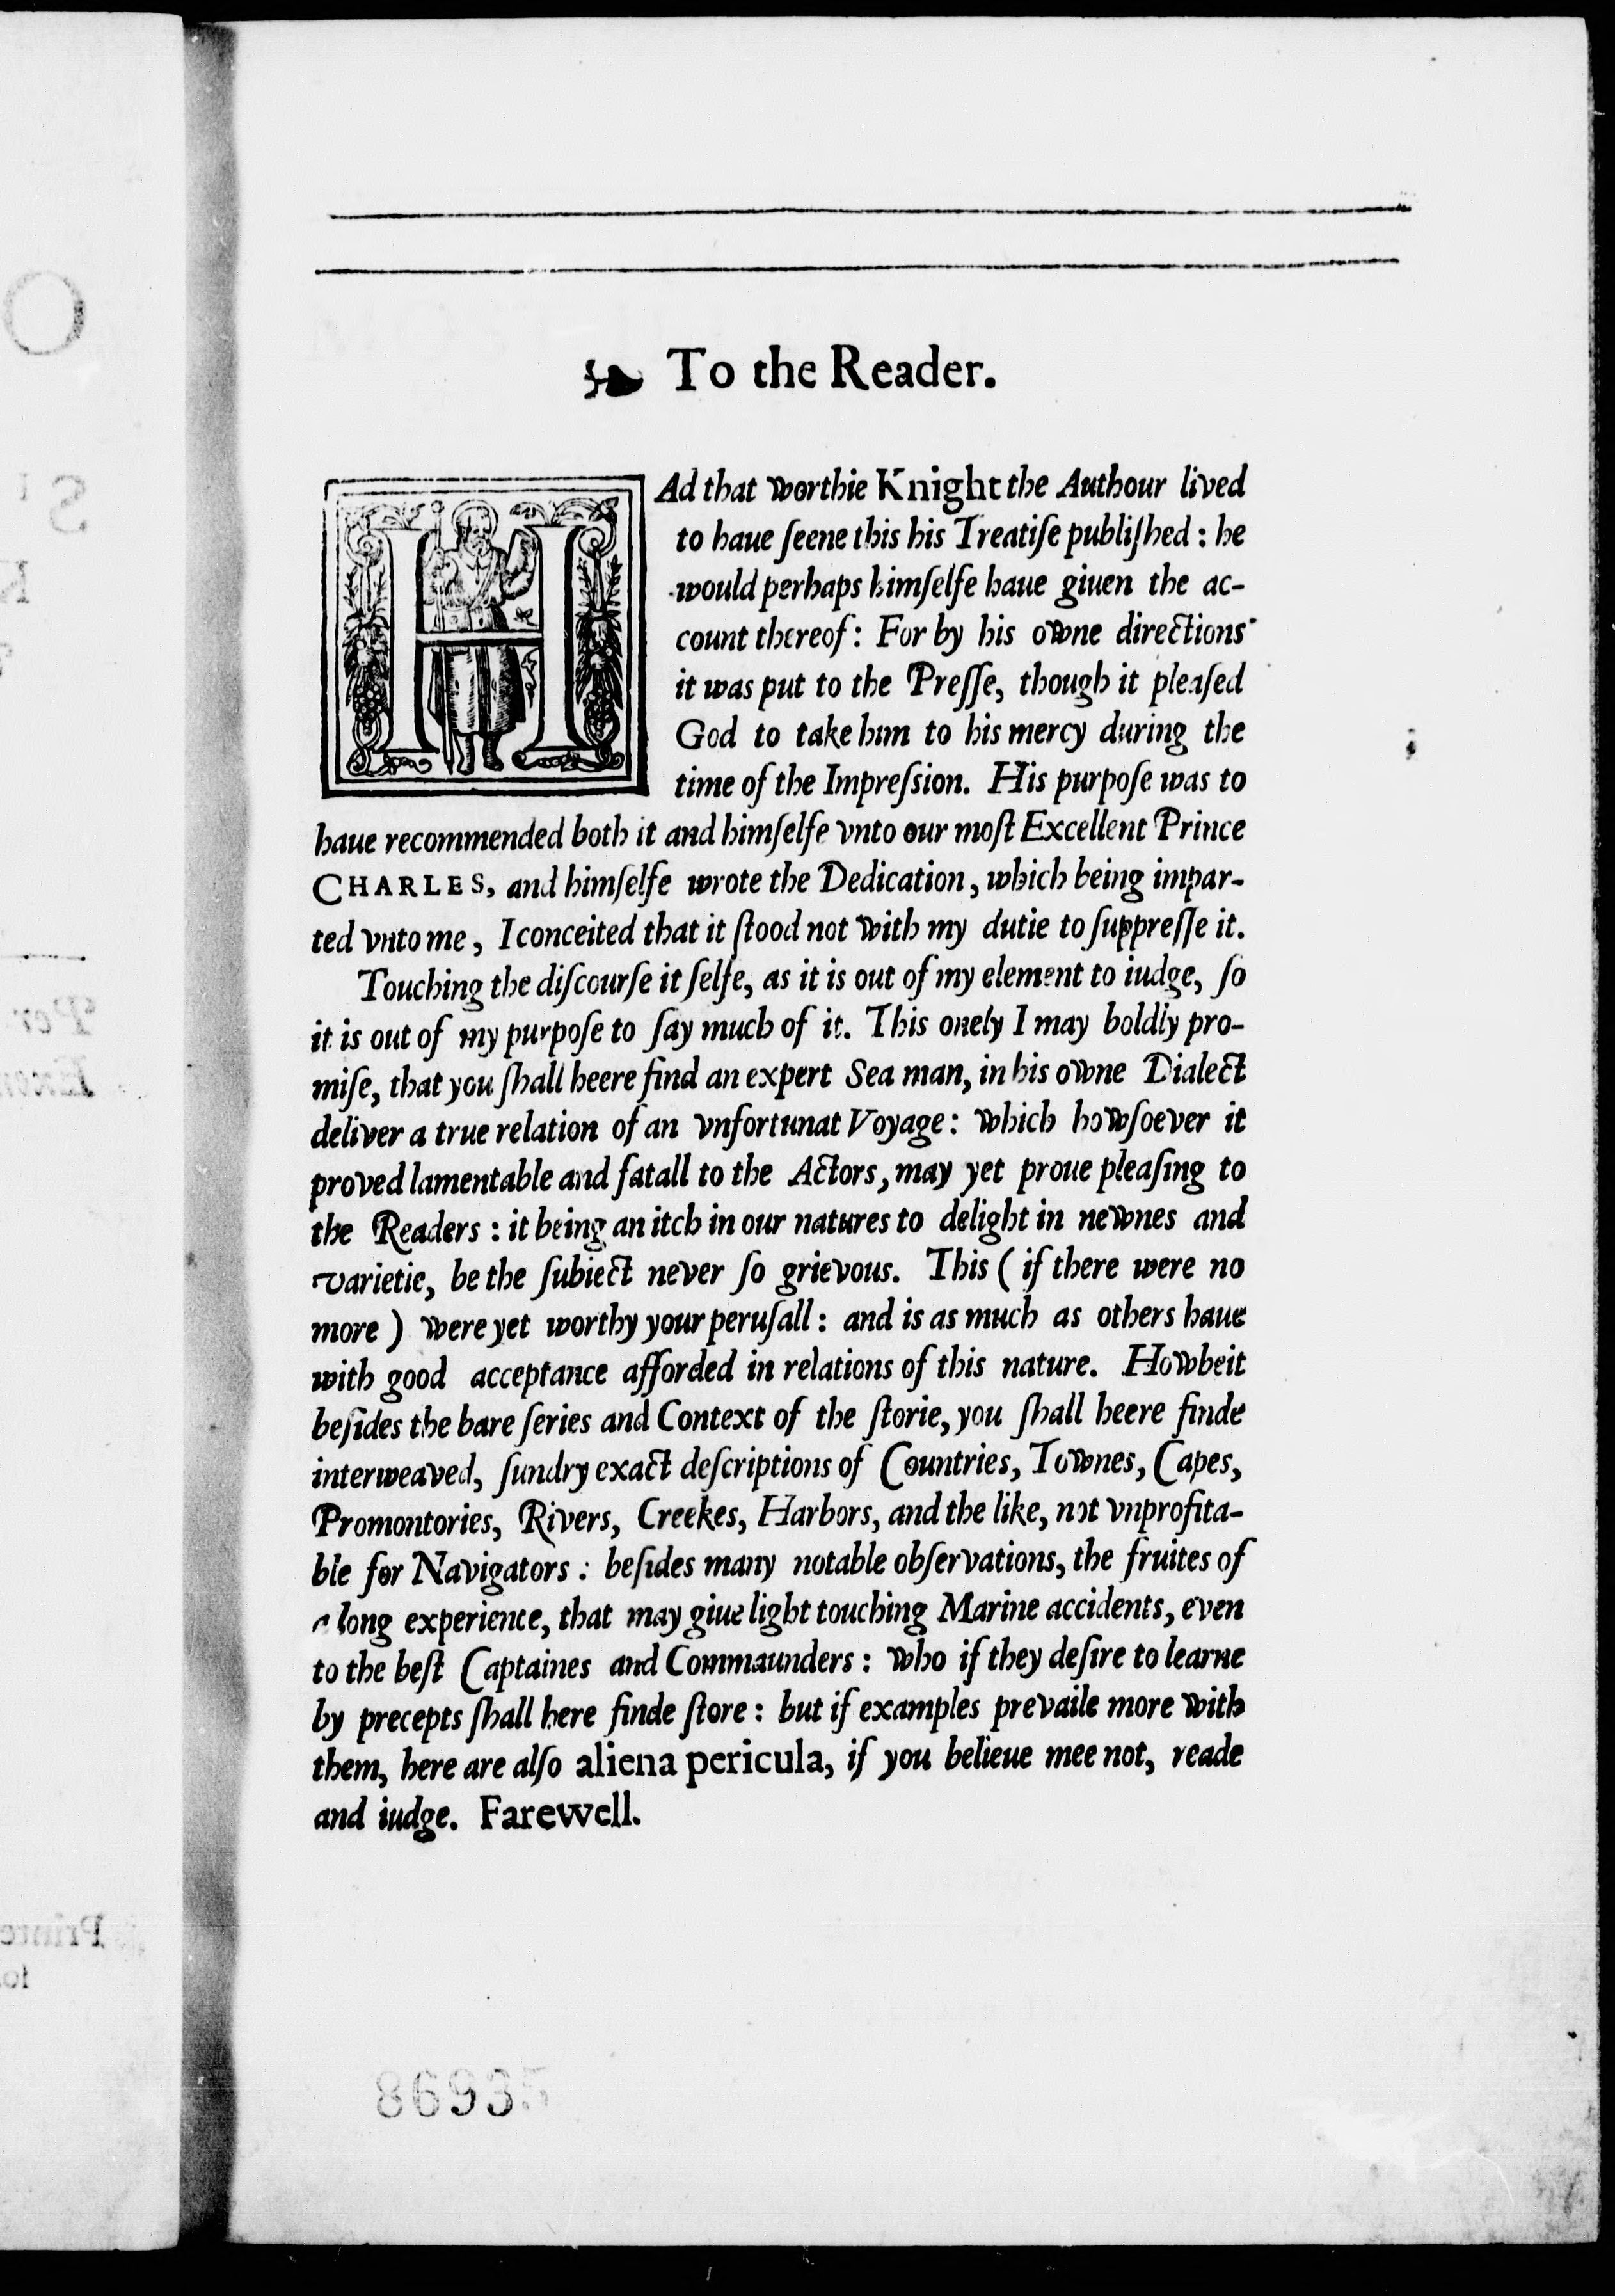 To the Reader.
HAd that worthie Knight the Authour lived
to haue ſeene this his Treatiſe publiſhed : he
would perhaps himſelfe haue giuen the ac-
count thereof : For by his owne directions
it was put to the Preſſe, though it pleaſed
God to take him to his mercy during the
time of the Impreſsion. His purpoſe was to
haue recommended both it and himſelfe vnto our moſt Excellent Prince
CHARLES, and himſelfe wrote the Dedication, which being impar-
ted vnto me, I conceited that it ſtood not with my dutie to ſuppreſſe it.
Touching the diſcourſe it ſelfe, as it is out of my element to iudge, ſo
it is out of my purpoſe to ſay much of it. This onely I may boldly pro-
miſe, that you ſhall heere find an expert Sea man, in his owne Dialect
deliver a true relation of an vnfortunat Voyage : which howſoever it
proved lamentable and fatall to the Actors, may yet proue pleaſing to
the Readers : it being an itch in our natures to delight in newnes and
varietie, be the ſubiect never ſo grievous. This ( if there were no
more ) were yet worthy your peruſall : and is as much as others haue
with good acceptance afforded in relations of this nature. Howbeit
beſides the bare ſeries and Context of the ſtorie, you ſhall heere finde
interweaved, ſundry exact deſcriptions of Countries, Townes, Capes,
Promontories, Rivers, Creekes, Harbors, and the like, not vnprofita-
ble for Navigators : beſides many notable obſervations, the fruites of
a long experience, that may giue light touching Marine accidents, even
to the beſt Captaines and Commaunders : who if they deſire to learne
by precepts ſhall here finde ſtore : but if examples prevaile more with
them, here are alſo aliena pericula, if you belieue mee not, reade
and iudge. Farewell.
86935